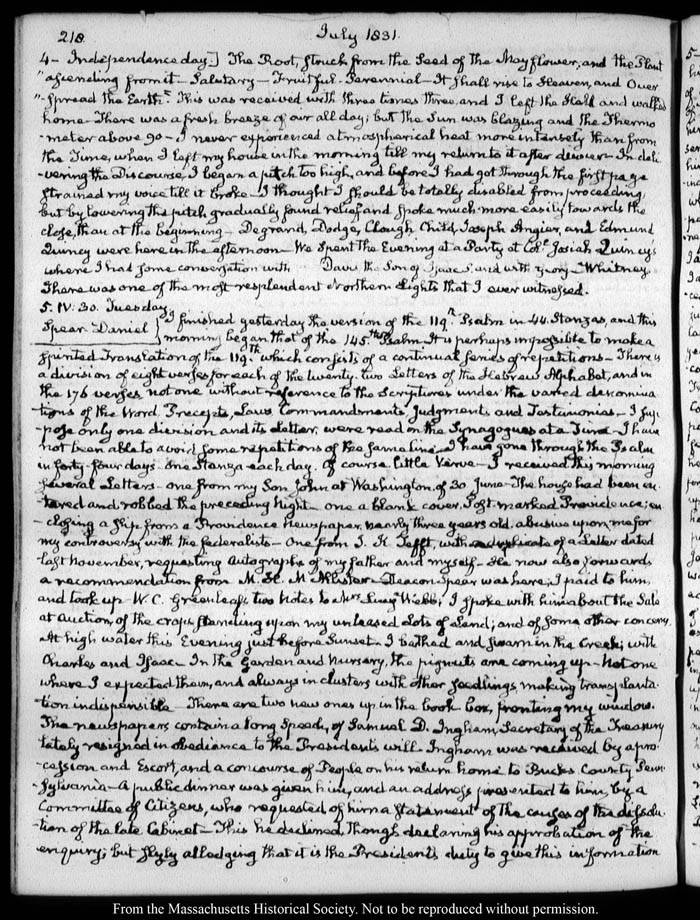 218
July 1831.
4— Independence day.] The Root, struck from the Seed of the Mayflower, and the Plant
"ascending from it— Salutary— Fruitful— Perennial— It shall rise to Heaven, and Over
"-spread the Earth." This was received with three times three, and I left the Hall and walked
home— There was a fresh breeze of air all day; but the Sun was blazing and the Thermo
-meter above 90— I never experienced atmospherical heat more intensely than from
the Time, when I left my house in the morning till my return to it after dinner— In deli
-vering the Discourse, I began a pitch too high, and before I had got through the first page
strained my voice till it broke— I thought I should be totally disabled from proceeding,
but by lowering the pitch gradually found relief and spoke much more easily towards the
close, than at the beginning— Degrand, Dodge, Clough, Child, Joseph Angier, and Edmund
Quincy were here in the afternoon— We spent the Evening at a Party at Col. Josiah Quincy's
where I had some conversation with Davis the Son of Isaac P. and with Whitney.
There was one of the most resplendent Northern Lights that I ever witnessed.
5. IV:30. Tuesday.
Spear Daniel } I finished yesterday the version of the 119th Psalm in 44 Stanzas, and this
morning began that of the 145th Psalm. It is perhaps impossible to make a
printed Translation of the 119th which consists of a continual series of repetitions— There is
a division of eight verses for each of the twenty-two Letters of the Hebrew Alphabet, and in
the 176 verses not one without reference to the Scriptures under the varied denomina
-tions of the Word, Precepts, Laws, Commandments, Judgments and Testimonies— I sup
-pose only one division and its letter, were read in the Synagogues at a Time— I have
not been able to avoid some repetitions of the same line— I have gone through the Psalm
in forty-four days. one Stanza each day. Of course little Verve— I received this morning
several Letters— one from my Son John at Washington of 30 June— The house had been en
-tered and robbed the preceding Night— one a blank cover. Post marked Providence; en
-closing a slip from a Providence Newspaper, nearly three years old, abusive upon me for
my controversy with the federalists— One from I. K. Tefft, with a duplicate of a Letter dated
last November, requesting Autographs of my father and myself— He now also forwards
a recommendation from M. H. McAllister— Deacon Spear was here; I paid to him,
and took up W. C. Greenleaf's two Notes to Mrs Lucy Webb; I spoke with him about the Sale
at Auction, of the crops standing upon my unleased Lots of Land; and of some other concerns.
At high water this Evening just before Sunset I bathed and swam in the Creek; with
Charles and Isaac— In the Garden and Nursery, the pignuts are coming up— Not one
where I expected them, and always in clusters with other seedlings, making transplanta
-tion indispensible— There are two new ones up in the book box, fronting my window.
The newspapers contain a long Speech, of Samuel D. Ingham, Secretary of the Treasury
lately resigned in obedience to the President's will. Ingham was received by a pro-
-cession and Escort, and a concourse of People on his return home to Bucks County Penn
-sylvania— A public dinner was given him, and an address presented to him, by a
Committee of Citizens, who requested of him a Statement of the causes of the dissolu
-tion of the late Cabinet— This he declined, though declaring his approbation of the
enquiry; but slyly alledging that it is the President's duty to give this information
From the Massachusetts Historical Society. Not to be reproduced without permission.